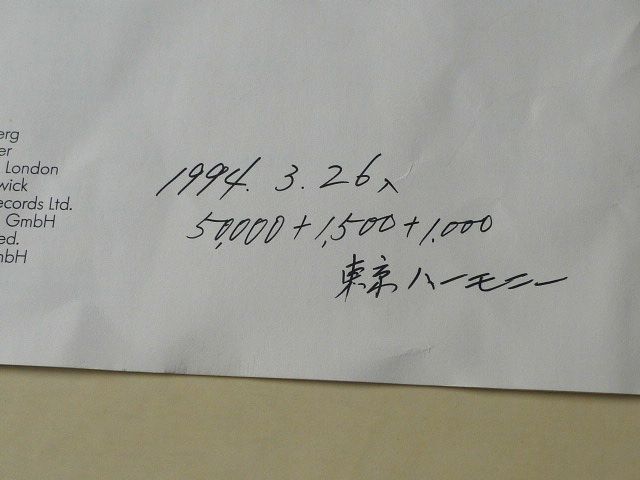 erg
er
London
wick
ecords Ltd.
GmbH
ed.
mbH
1994. 3. 26入
50,000+1,500+1,000
東京ハーモニー